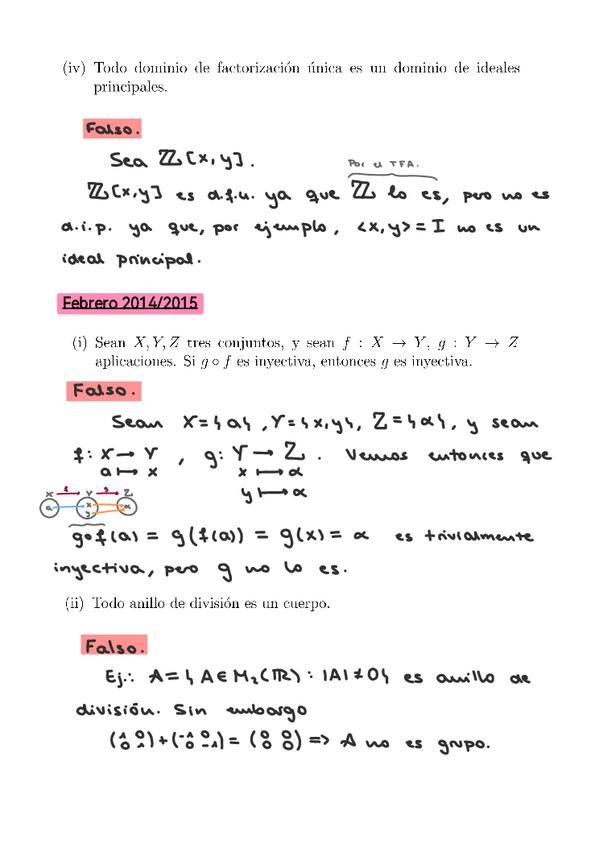 (iv) Todo dominio de factorización única es un dominio de ideales
principales.
Falso.
Sea ℤ[x,y].
Por el TFA.
ℤ[x,y] es d.f.u. ya que ℤ lo es, pero no es
d.i.p. ya que, por ejemplo, <x,y> = I no es un
ideal principal.
Febrero 2014/2015
(i) Sean X, Y, Z tres conjuntos, y sean f : X → Y, g : Y → Z
aplicaciones. Si g ∘ f es inyectiva, entonces g es inyectiva.
Falso.
Sean X={a}, Y={x,y}, Z={α}, y sean
f: X → Y , g: Y → Z . Vemos entonces que
a ↦ x x ↦ α
y ↦ α
X f Y g Z
a x y α
g∘f(a) = g(f(a)) = g(x) = α es trivialmente
inyectiva, pero g no lo es.
(ii) Todo anillo de división es un cuerpo.
Falso.
Ej.: A = { A ∈ M₂(ℝ) : |A| ≠ 0 } es anillo de
división. Sin embargo
(1 0
0 1) + (-1 0
0 -1) = (0 0
0 0) => A no es grupo.